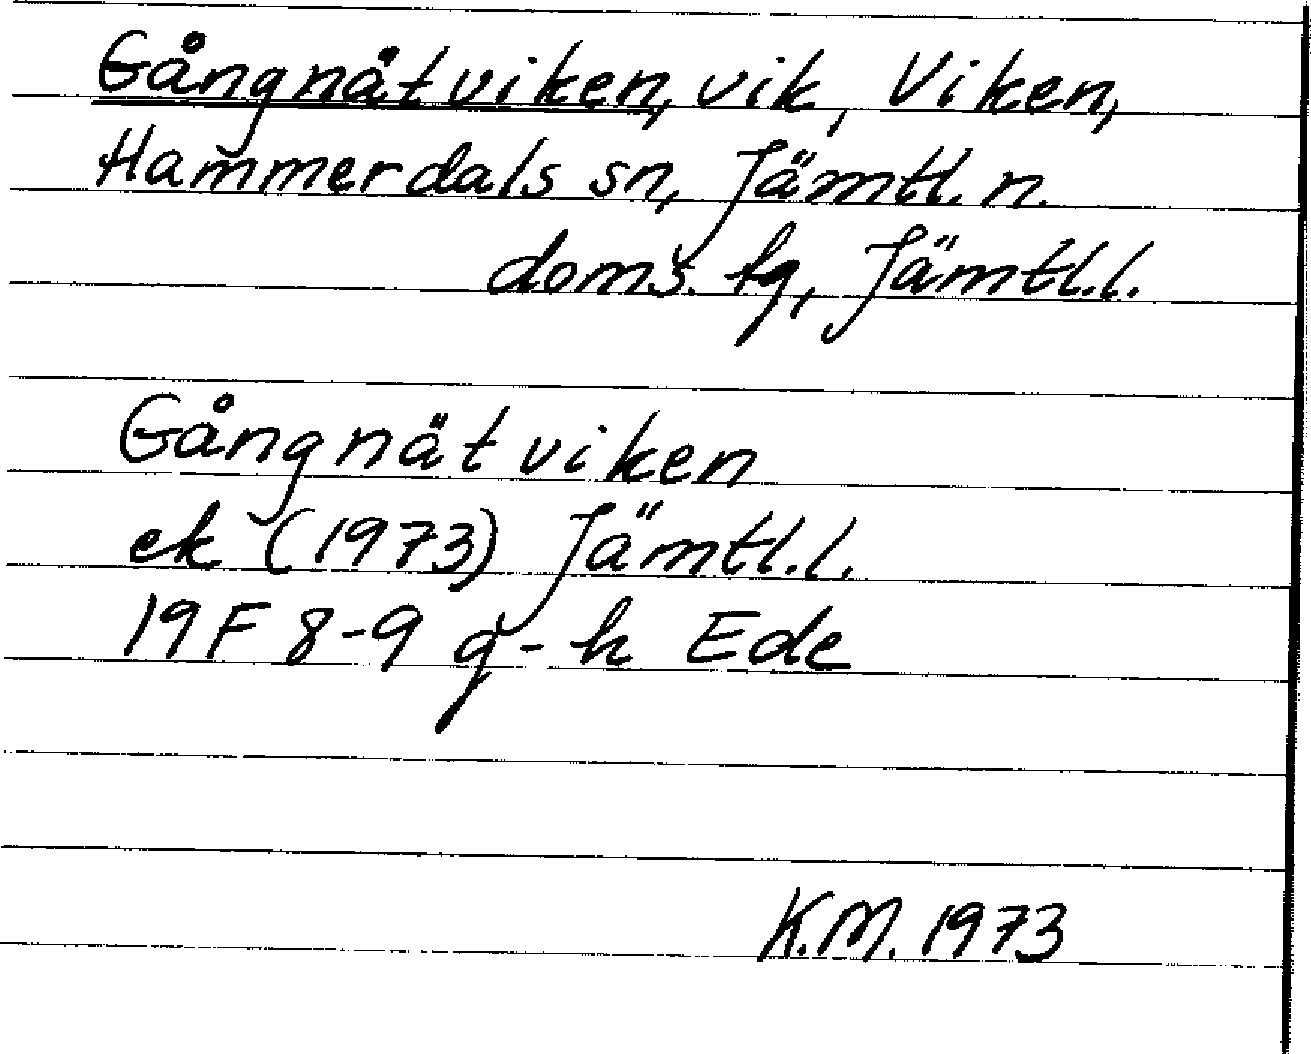 Gångnätviken, vik, Viken,
Hammerdals sn, Jämtl. n.
doms. tg, Jämtl.l.
Gångnätviken
ek (1973) Jämtl.l.
19F 8-9 g-h Ede
K.M. 1973